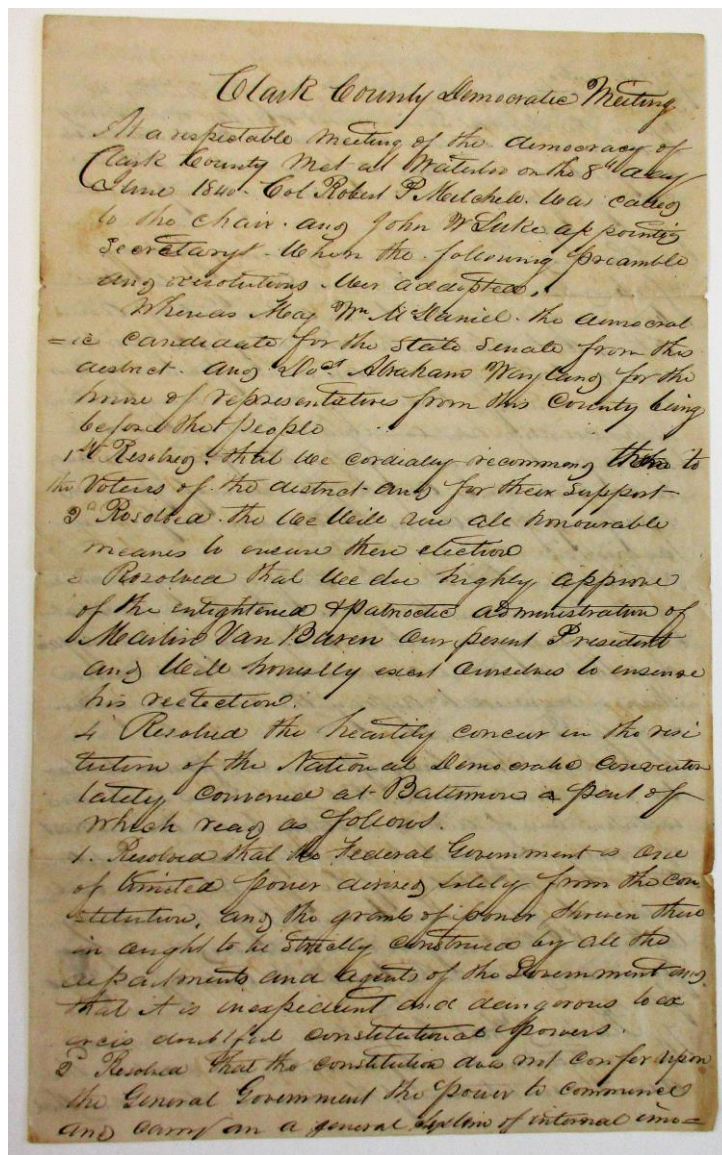 Clark County Democratic Meeting
At a respectable meeting of the democracy of
Clark County Met at Waterloo on the 8th day
June 1840. Col Robert P Mitchell. was called
to the chair. and John W Luke appointed
Secretary. When the following preamble
and resolutions wer addopted.
Whereas Maj Wm McDaniel. the democrat
=ic candidate for the State Senate from this
district. and Doct Abraham Wayland for the
house of representatives from this County being
before the people
1st Resolved. that we cordially recommend them to
the Voters of the district and for their support
2d Resolved. the we will use all honourable
means to ensure there election
Resolved that we due highly approve
of the enlightened & patriotic administration of
Martin Van Buren our present President
and will honestly exert ourselves to ensure
his reelection.
4 Resolved the heartily concur in the resi
tution of the National Democratic convention
lately convened at Baltimore a part of
which read as follows.
1. Resolved that the Federal Government is one
of limited power derived solely from the con
stitution, and the grants of power there
in aught to be strictly construed by all the
departments and agents of the Government and
that it is inexpedient and dangerous to ex
ercis doubtful constitutional powers.
2d Resolved that the constitution dus not confer upon
the General Government the power to commence
and carry on a general system of internal imo=